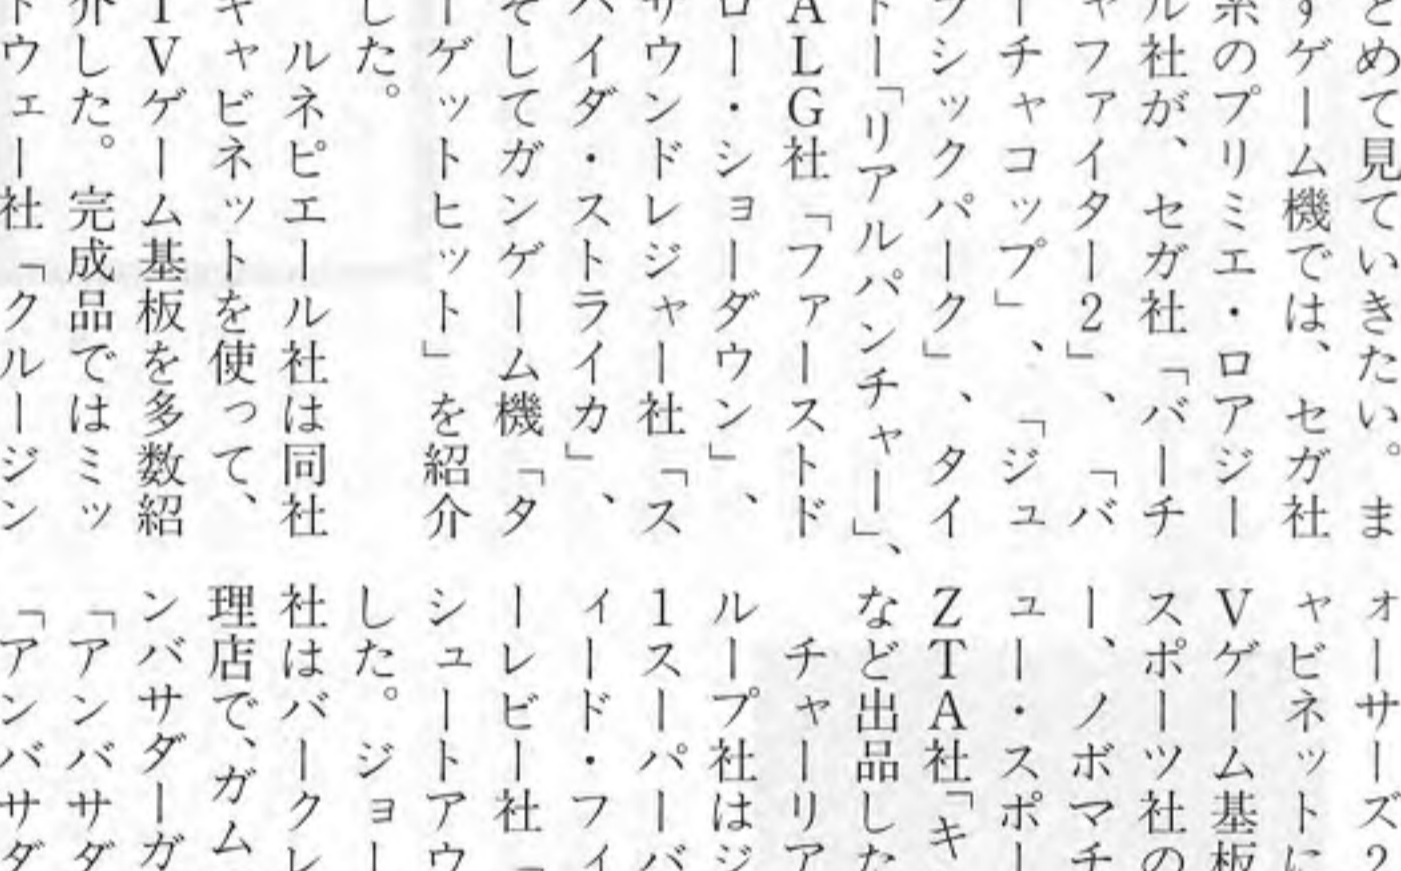 とめて見ていきたい。ま
すゲーム機では、セガ社
系のプリミエ・ロアジー
ル社が、セガ社「バーチ
ャファイター2」、「バ
ーチャコップ」、「ジュ
ラシックパーク」、タイ
トー「リアルパンチャー」、
ALG社「ファーストド
ロー・ショーダウン」、
サウンドレジャー社「ス
パイダ・ストライカ」、
そしてガンゲーム機「タ
ーゲットヒット」を紹介
した。
ルネピエール社は同社
キャビネットを使って、
TVゲーム基板を多数紹
介した。完成品ではミッ
ドウェー社「クルージン
ォーサーズ2
ャビネットに
Vゲーム基板
スポーツ社の
ー、ノボマチ
ュー・スポー
ZTA社「キ
など出品した
チャーリア
ループ社はジ
1スーパーバ
ィード・フィ
ーレビー社「
シュートアウ
した。ジョー
社はバークレ
理店で、ガム
ンバサダーガ
「アンバサダ
「アンバサダ